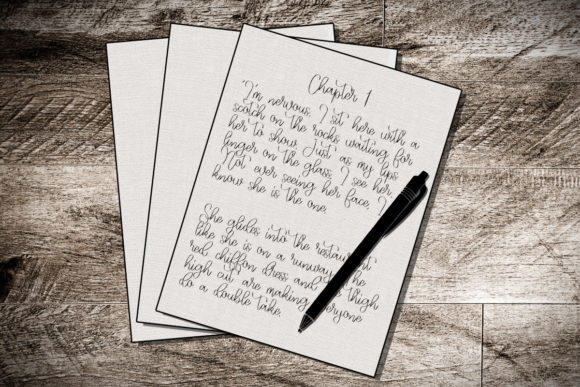 Chapter 1
"I'm nervous. I sit here with a
scotch on the rocks waiting for
her to show. Just as my lips
linger on the glass, I see her.
Not ever seeing her face, I
know she is the one.
She glides into the restaurant
like she is on a runway. The
red chiffon dress and the thigh
high cut are making everyone
do a double take.